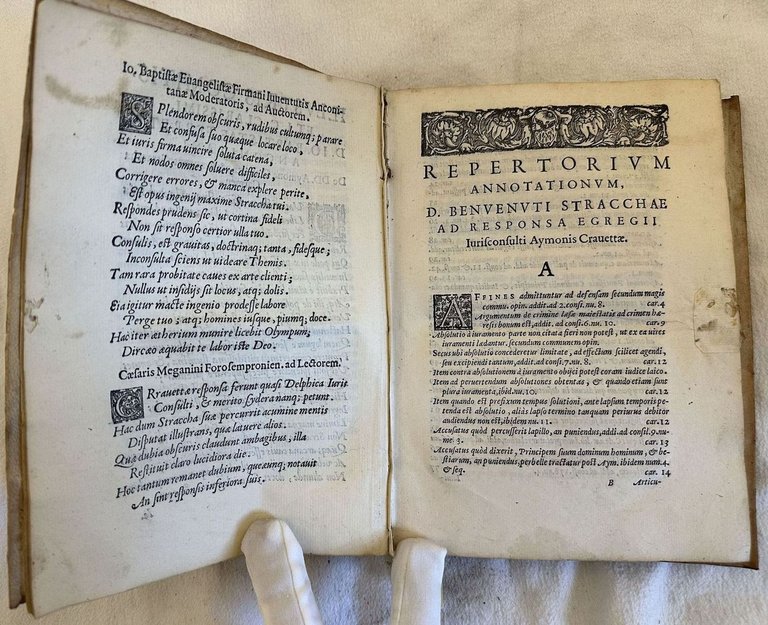 Io. Baptistæ Euangelistæ Firmani Iuuentutis Anconi-
tanæ Moderatoris, ad Auctorem.
SPlendorem obscuris, rudibus cultumq; parare
Et confusa suo quæque locare loco,
Et iuris firma vincire soluta catena,
Et nodos omnes soluere difficiles,
Corrigere errores, & manca explere perite,
Est opus ingenij maxime Straccha tui.
Respondes prudens sic, ut cortina fideli
Non sit responso certior ulla tuo.
Consulis, est grauitas, doctrinaq; tanta, fidesque;
Inconsulta sciens ut uideare Themis.
Tam rara probitate caues ex arte clienti;
Nullus ut insidijs sit locus, atq; dolis.
Eia igitur macte ingenio prodesse labore
Perge tuo; atq; homines iusque, piumq; doce.
Hac iter ætherium munire licebit Olympum;
Dircæo æquabit te labor iste Deo.
Cæsaris Meganini Forosempronien. ad Lectorem.
CRauettæ responsa ferunt quasi Delphica Iuris
Consulti, & merito Lydera nanq; petunt.
Hac dum Straccha suæ percurrit acumine mentis
Disputat illustrans, quæ latuere alios.
Quæ dubia obscuris claudunt ambagibus, illa
Restituit claro lucidiora die.
Hoc tantum remanet dubium, quæ nunq; notauit
An sint responsis inferiora suis.
REPERTORIVM
ANNOTATIONVM,
D. BENVENVTI STRACCHAE
AD RESPONSA EGREGII
Iurisconsulti Aymonis Crauettæ.
A
AFFINES admittuntur ad defensam secundum magis
commu. opin. addit. ad 2. cons. nu. 8. car. 4
Argumentum de crimine læsæ maiestatis ad crimen hæ-
resis bonum est, addit. ad consi. 6. nu. 10. car. 9
Absolutio à iuramento parte non citata fieri non potest, ut ex ea uires
iuramenti lædantur, secundum communem opin.
Secus ubi absolutio concederetur limitatè, ad effectum scilicet agendi,
seu excipiendi tantum, addit. ad cons. 7. nu. 8. car. 12
Item contra absolutionem à iuramento obijci potest coram iudice laico.
Item ad peruertendum absolutiones obtentas, & quando etiam sunt
plura iuramenta, ibid. nu. 10. car. 12
Item quando est prefixum tempus solutioni, ante lapsum temporis pe-
tenda est absolutio, aliàs lapso termino tanquam periurus debitor
audiendus non est, ibidem nu. 11. car. 12
Accusatus quòd percusserit lapillo, an puniendus, addi. ad consil. 9. nu-
me. 3. car. 13
Accusatus quòd dixerit, Principem suum dominum hominum, & be-
stiarum, an puniendus, perbelle tractatur post Aym. ibidem num. 4.
& seq. car. 14
B Articu-